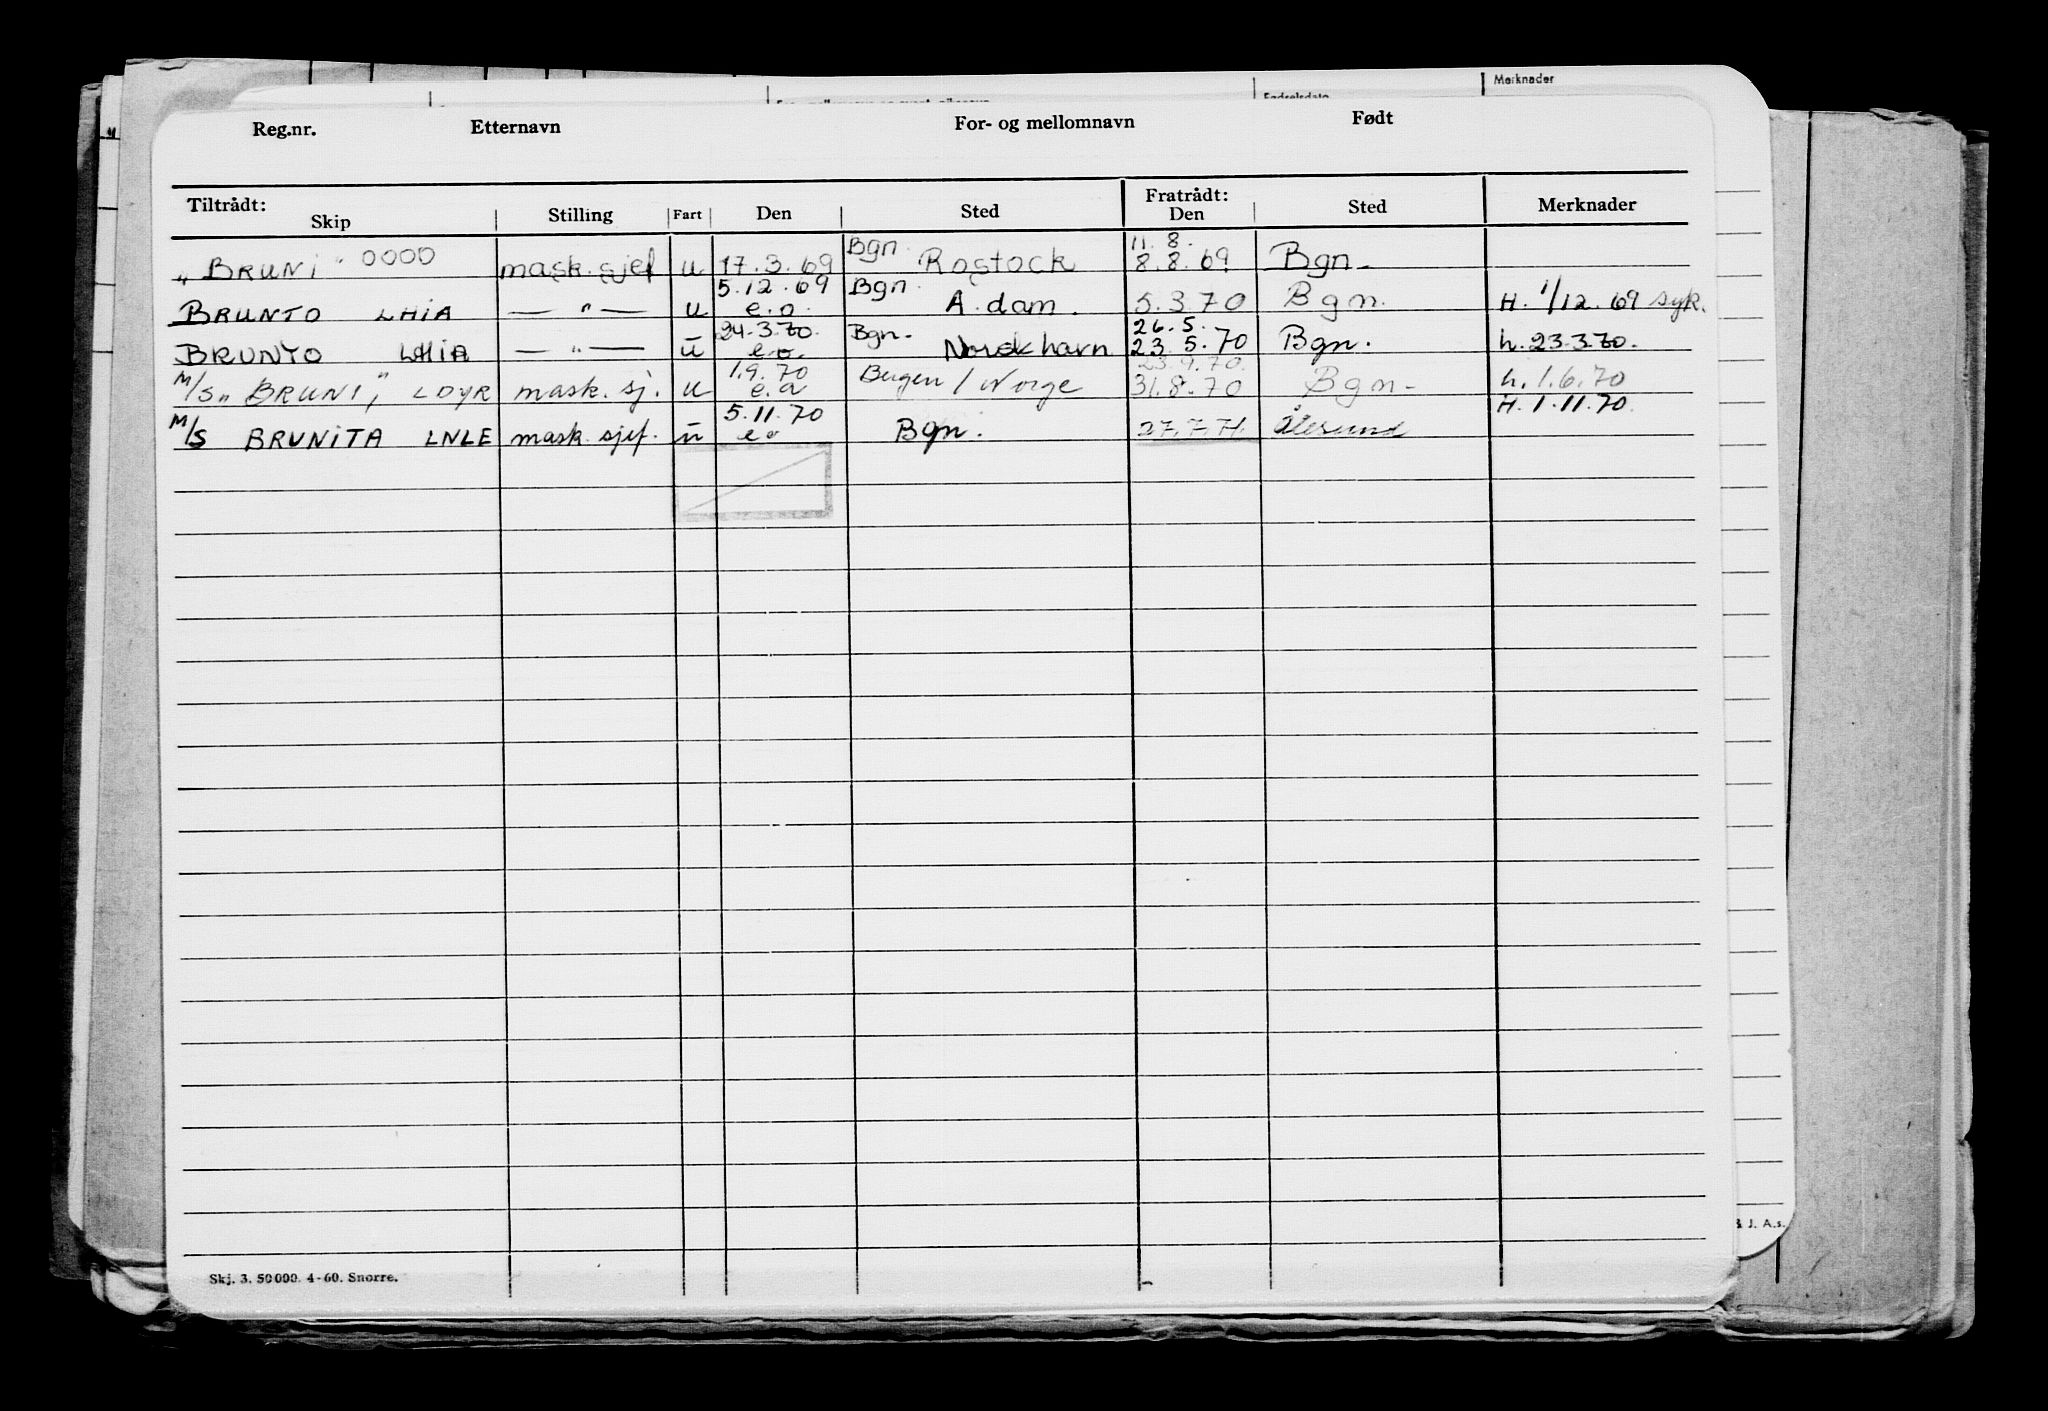 Merknader
Fødselsdato
Reg.nr. Etternavn For- og mellomnavn Født
Tiltrådt: Skip Stilling Fart Den Sted Fratrådt: Den Sted Merknader
Bgn. 11.8.
"BRUNI" 0000 mask. sjef u 17.3.69 Rostock 8.8.69 Bgn.
5.12.69 Bgn.
BRUNTO LHIA — " — u e.o. A.dam. 5.3.70 Bgn. H. 1/12.69 syk.
24.3.70. Bgn. 26.5.
BRUNTO LHIA — " — u e.o. Norsk havn 23.5.70 Bgn. h. 23.3.70.
1.9.70 23.9.70.
M/S "BRUNI", LDYR mask. sj. u e.o Bergen / Norge 31.8.70 Bgn. h. 1.6.70
5.11.70 H. 1.11.70.
M/S BRUNITA LNLE mask. sjef. u eo Bgn. 27.7.71. Ålesund
& J. A.s.
Skj. 3. 50 000. 4-60. Snorre.